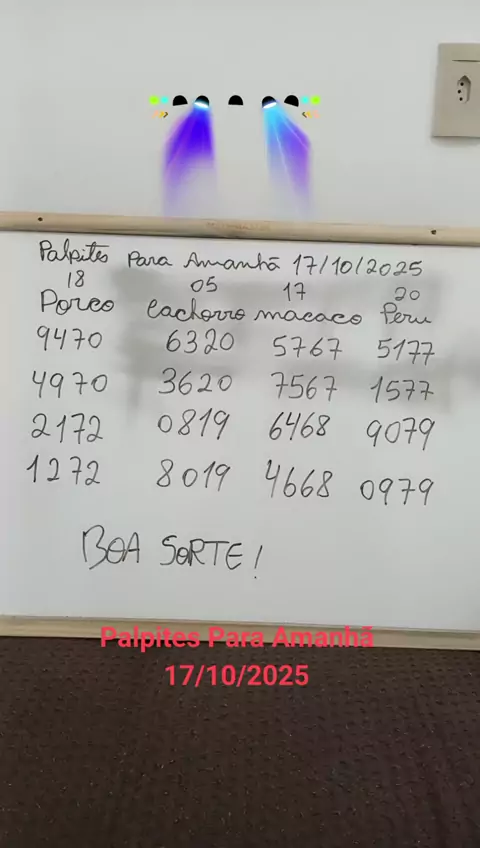 Palpites Para Amanhã 17/10/2025
18 05 17 20
Porco Cachorro macaco Peru
9470 6320 5767 5177
4970 3620 7567 1577
2172 0819 6468 9079
1272 8019 4668 0979
BOA SORTE!
Palpites Para Amanhã
17/10/2025